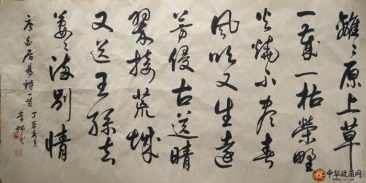 離〻原上草
一歲一枯榮野
火燒不盡春
風吹又生遠
芳侵古道晴
翠接荒城
又送王孫去
萋〻滿別情
唐白居易詩一首
丁酉年